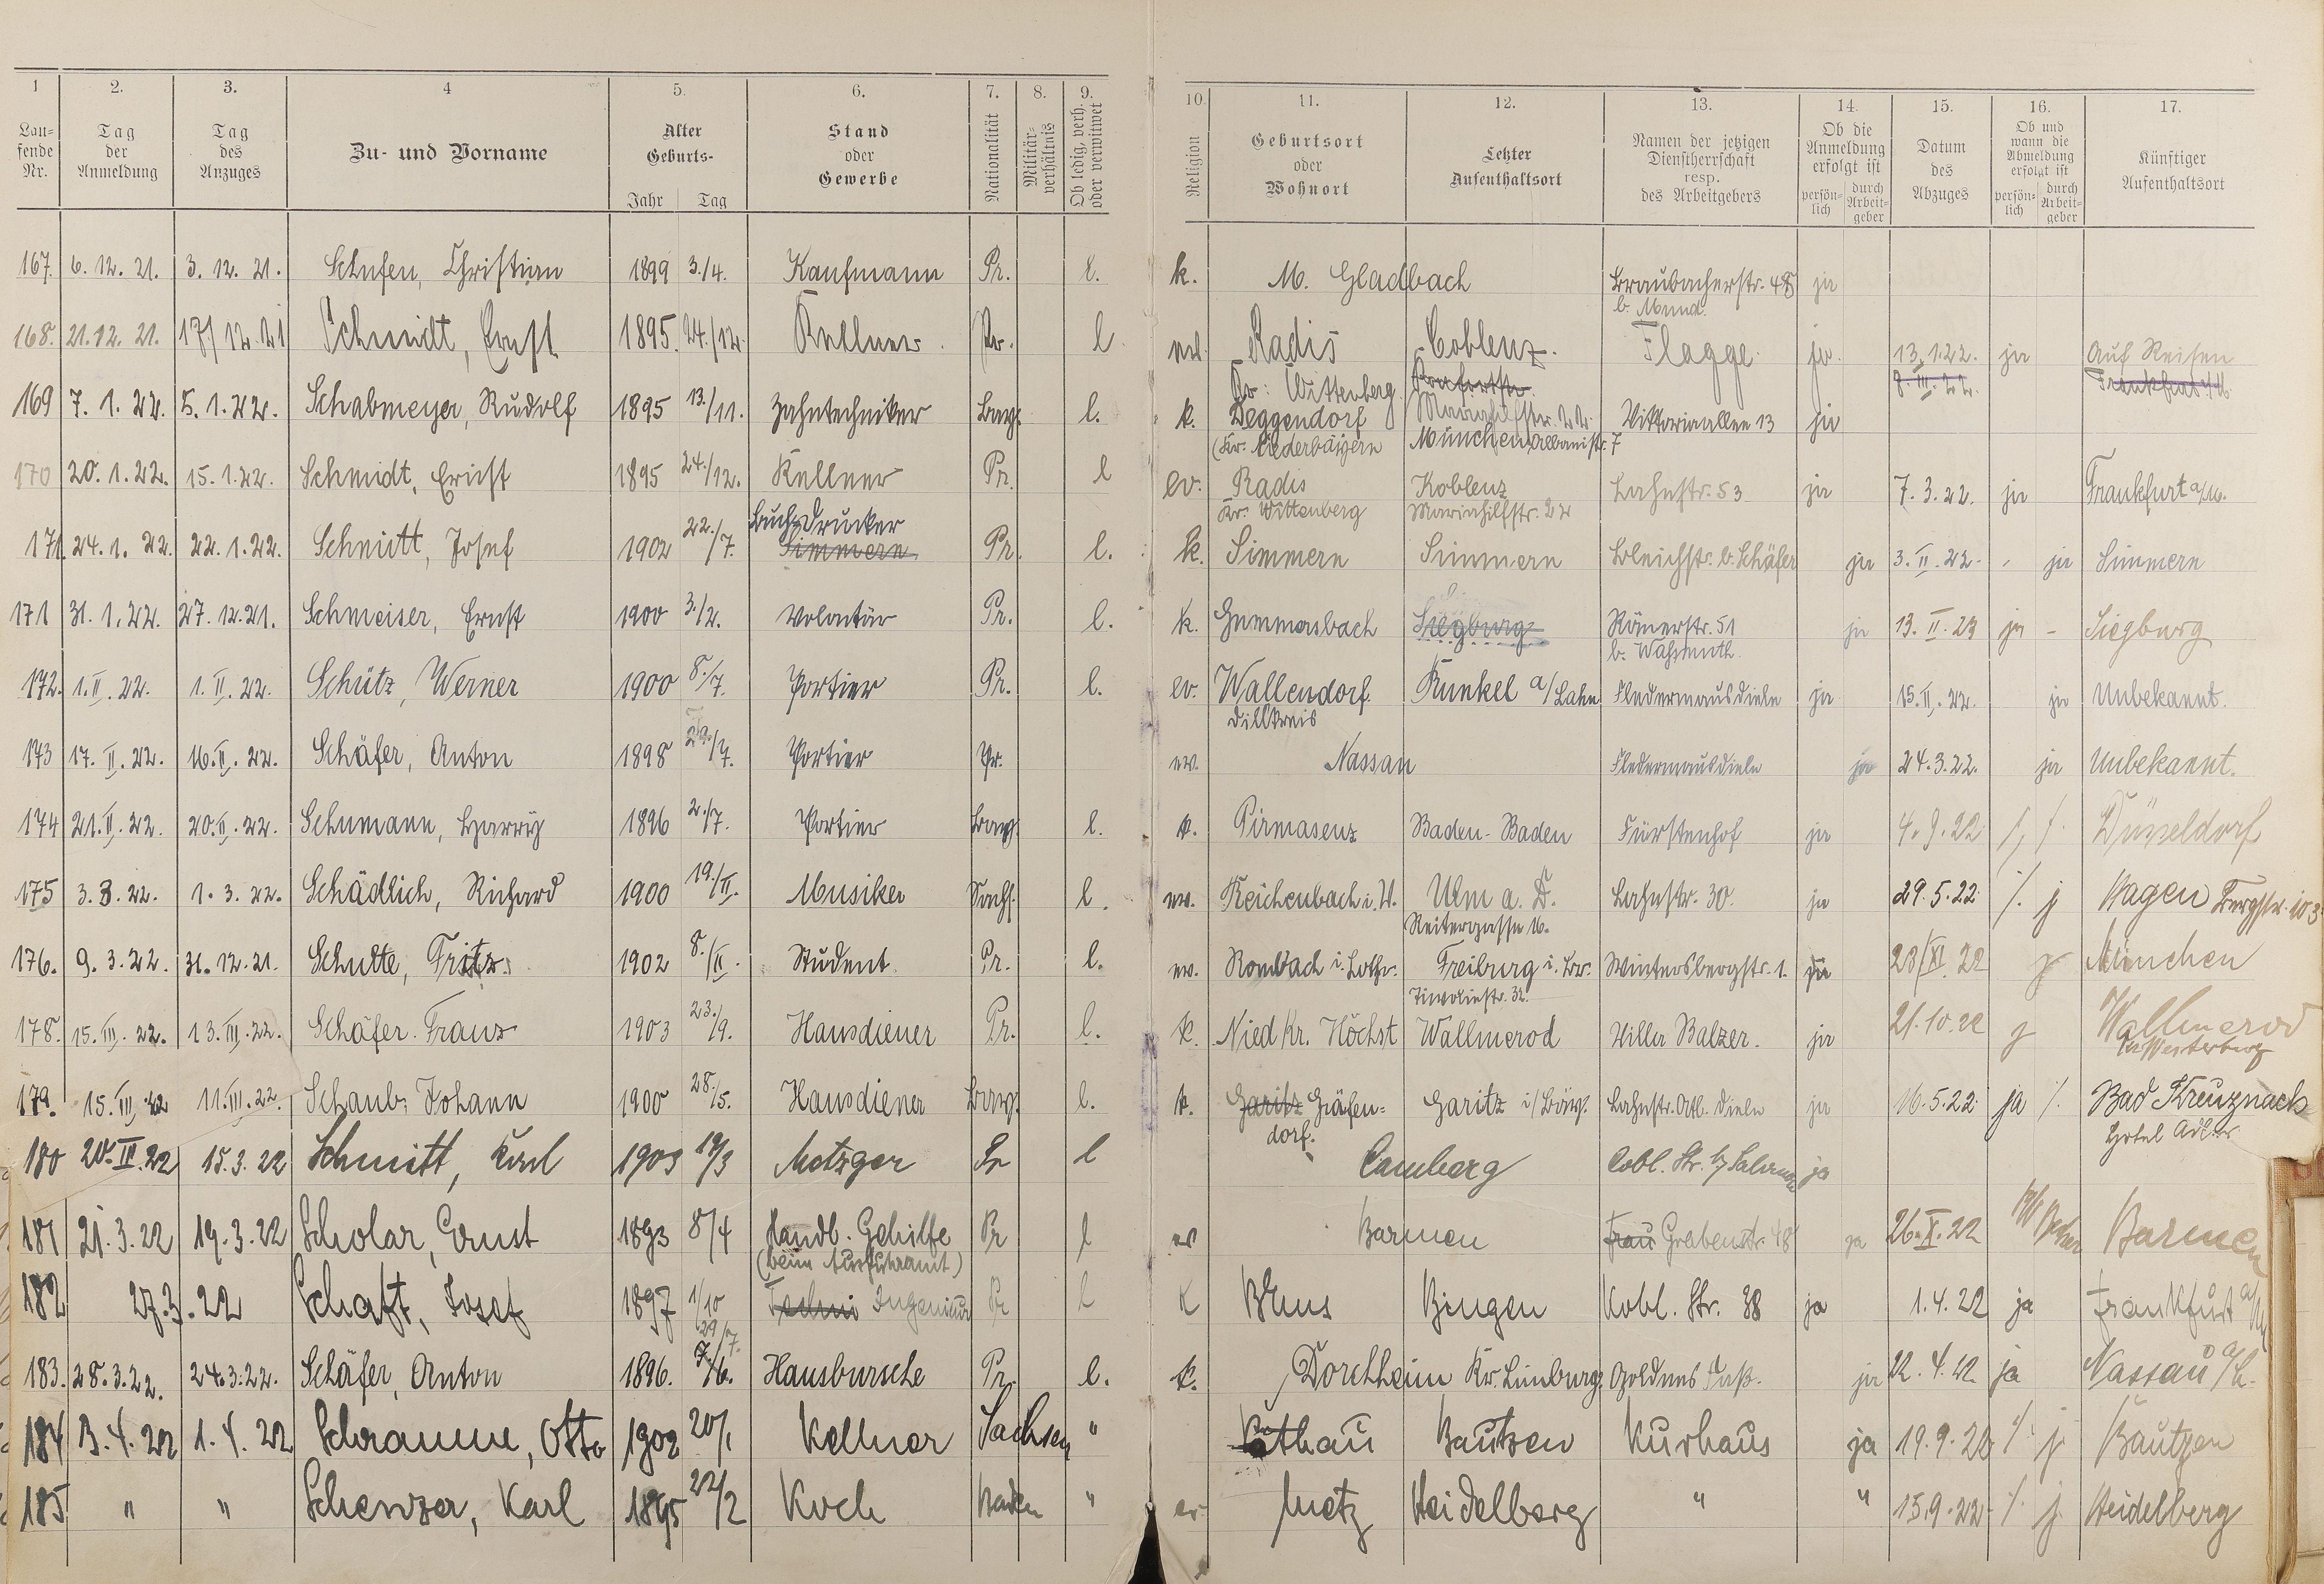 1 2. 3. 4 5. 6. 7. 8. 9. 10. 11. 12. 13. 14. 15. 16. 17.
Lau-fende Nr. Tag der Anmeldung Tag des Anzuges Zu- und Vorname Alter Geburts- Jahr Tag Stand oder Gewerbe Nationalität Militär-verhältnis Ob ledig, verh. oder verwitwet Religion Geburtsort oder Wohnort Letzter Aufenthaltsort Namen der jetzigen Dienstherrschaft resp. des Arbeitgebers Ob die Anmeldung erfolgt ist persön-lich durch Arbeit-geber Datum des Abzuges Ob und wann die Abmeldung erfolgt ist persön-lich durch Arbeit-geber Künftiger Aufenthaltsort
167. 6. 12. 21. 3. 12. 21. Christian 1899 3./4. Kaufmann Pr. l. k. M. Gladbach Braubacherstr. 48 ja
b. Mund.
168. 21. 12. 21. 17./12.21 Schmidt, Ernst 1895. 24./12. Kellner. Pr. l. ev. Radis Coblenz. Flagge ja. 13.1.22. ja Auf Reisen
Kr: Wittenberg 8. III. 22. Frankfurt a/M.
169 7. 1. 22. 5. 1. 22. Schabmeyer, Rudolf 1895 13./11. Zahntechniker Bay. l. k. Deggendorf Viktoriaallee 13 ja
(Kr. Niederbayern München, Albanistr. 7
170 20. 1. 22. 15. 1. 22. Schmidt, Ernst 1895 24./12. Kellner Pr. l ev. Radis Koblenz Lahnstr. 53 ja 7. 3. 22. ja Frankfurt a/M.
Kr. Wittenberg Mariahilfstr. 22
Buchdrucker
171. 24. 1. 22. 22. 1. 22. Schmitt, Josef 1902 22./7. Simmern Pr. l. k. Simmern Simmern Bleichstr. b. Schäfer ja 3. II. 22. - ja Simmern
171 31. 1. 22. 27. 12. 21. Schmeiser, Ernst 1900 3./2. Volontär Pr. l. k. Gummersbach Siegburg Römerstr. 51 ja 13. II. 23 ja - Siegburg
b. Wassmuth.
172. 1. II. 22. 1. II. 22. Schütz, Werner 1900 8./7. Portier Pr. l. ev. Wallendorf Runkel a/Lahn Fledermausdiele ja 15. II. 22. ja Unbekannt.
Dillkreis
173 17. II. 22. 16. II. 22. Schäfer, Anton 1898 29./7. Portier Pr. ev. Nassau Fledermausdiele ja 24.3.22. ja Unbekannt.
174 21. II. 22. 20. II. 22. Schumann, Harry 1896 2./7. Portier Bay. l. k. Pirmasens Baden-Baden Fürstenhof ja 4. 9. 22. Düsseldorf
175 3. 3. 22. 1. 3. 22. Schädlich, Richard 1900 19./II. Musiker Sachs. l. ev. Reichenbach i. V. Ulm a. D. Lahnstr. 30. ja 29. 5. 22. /. j Hagen Bergstr. 103
Reitergasse 16.
176. 9. 3. 22. 31. 12. 21. Schulte, Fritz 1902 8./II. Student Pr. l. ev. Rombach i. Lothr. Freiburg i. Br. Wintersbergstr. 1. ja 23/XI. 22 j München
Tivolistr. 32.
178. 15. III. 22. 13. III. 22. Schäfer. Franz 1903 23./9. Hausdiener Pr. l. k. Nied Kr. Höchst Wallmerod Villa Balzer. ja 21. 10. 22 j Wallmerod
Kr Westerburg
179. 15. III. 22 11. III. 22. Schaub, Johann 1900 28./5. Hausdiener Bay. l. k. Garitz Gräfen= Garitz i/Bay. Lahnstr. diele ja 16. 5. 22. ja /. Bad Kreuznach
dorf. Hotel Adler
180 20. III. 22 15. 3. 22 Schmitt, Karl 1903 19/3 Metzger Pr l Camberg Cobl. Str. ja
181 21. 3. 22 19. 3. 22 Scholar, Ernst 1893 8/4 Handl. Gehilfe Pr l ev Barmen Frau Grabenstr. 48 ja 26. X. 22 Barmen
(beim Ausfuhramt)
182 27. 3. 22 Schaft, Josef 1897 1/10 Techni Ingenieur Pr l K Bingen Kobl. Str. 38 ja 1. 4. 22 ja Frankfurt a/M
29/7.
183. 28. 3. 22. 24. 3. 22. Schäfer, Anton 1896. 7./6. Hausbursche Pr. l. k. Dorchheim Kr. Limburg. Goldnes Fass. ja 12. 4. 22 ja Nassau a/L.
184 3. 4. 22 1. 4. 22 Schramm, Otto 1902 20/1 Kellner Sachsen " Bautzen Kurhaus ja 19. 9. 22 /. j. Bautzen
185 " " Schenzer, Karl 1895 22/2 Koch Baden " ev. Metz Heidelberg " " 15. 9. 22. /. j. Heidelberg